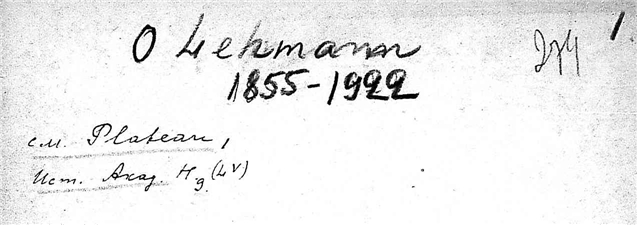 O Lehmann
1855-1922
274 1.
см. Plateau,
Ист. Акад. Hg (LV)